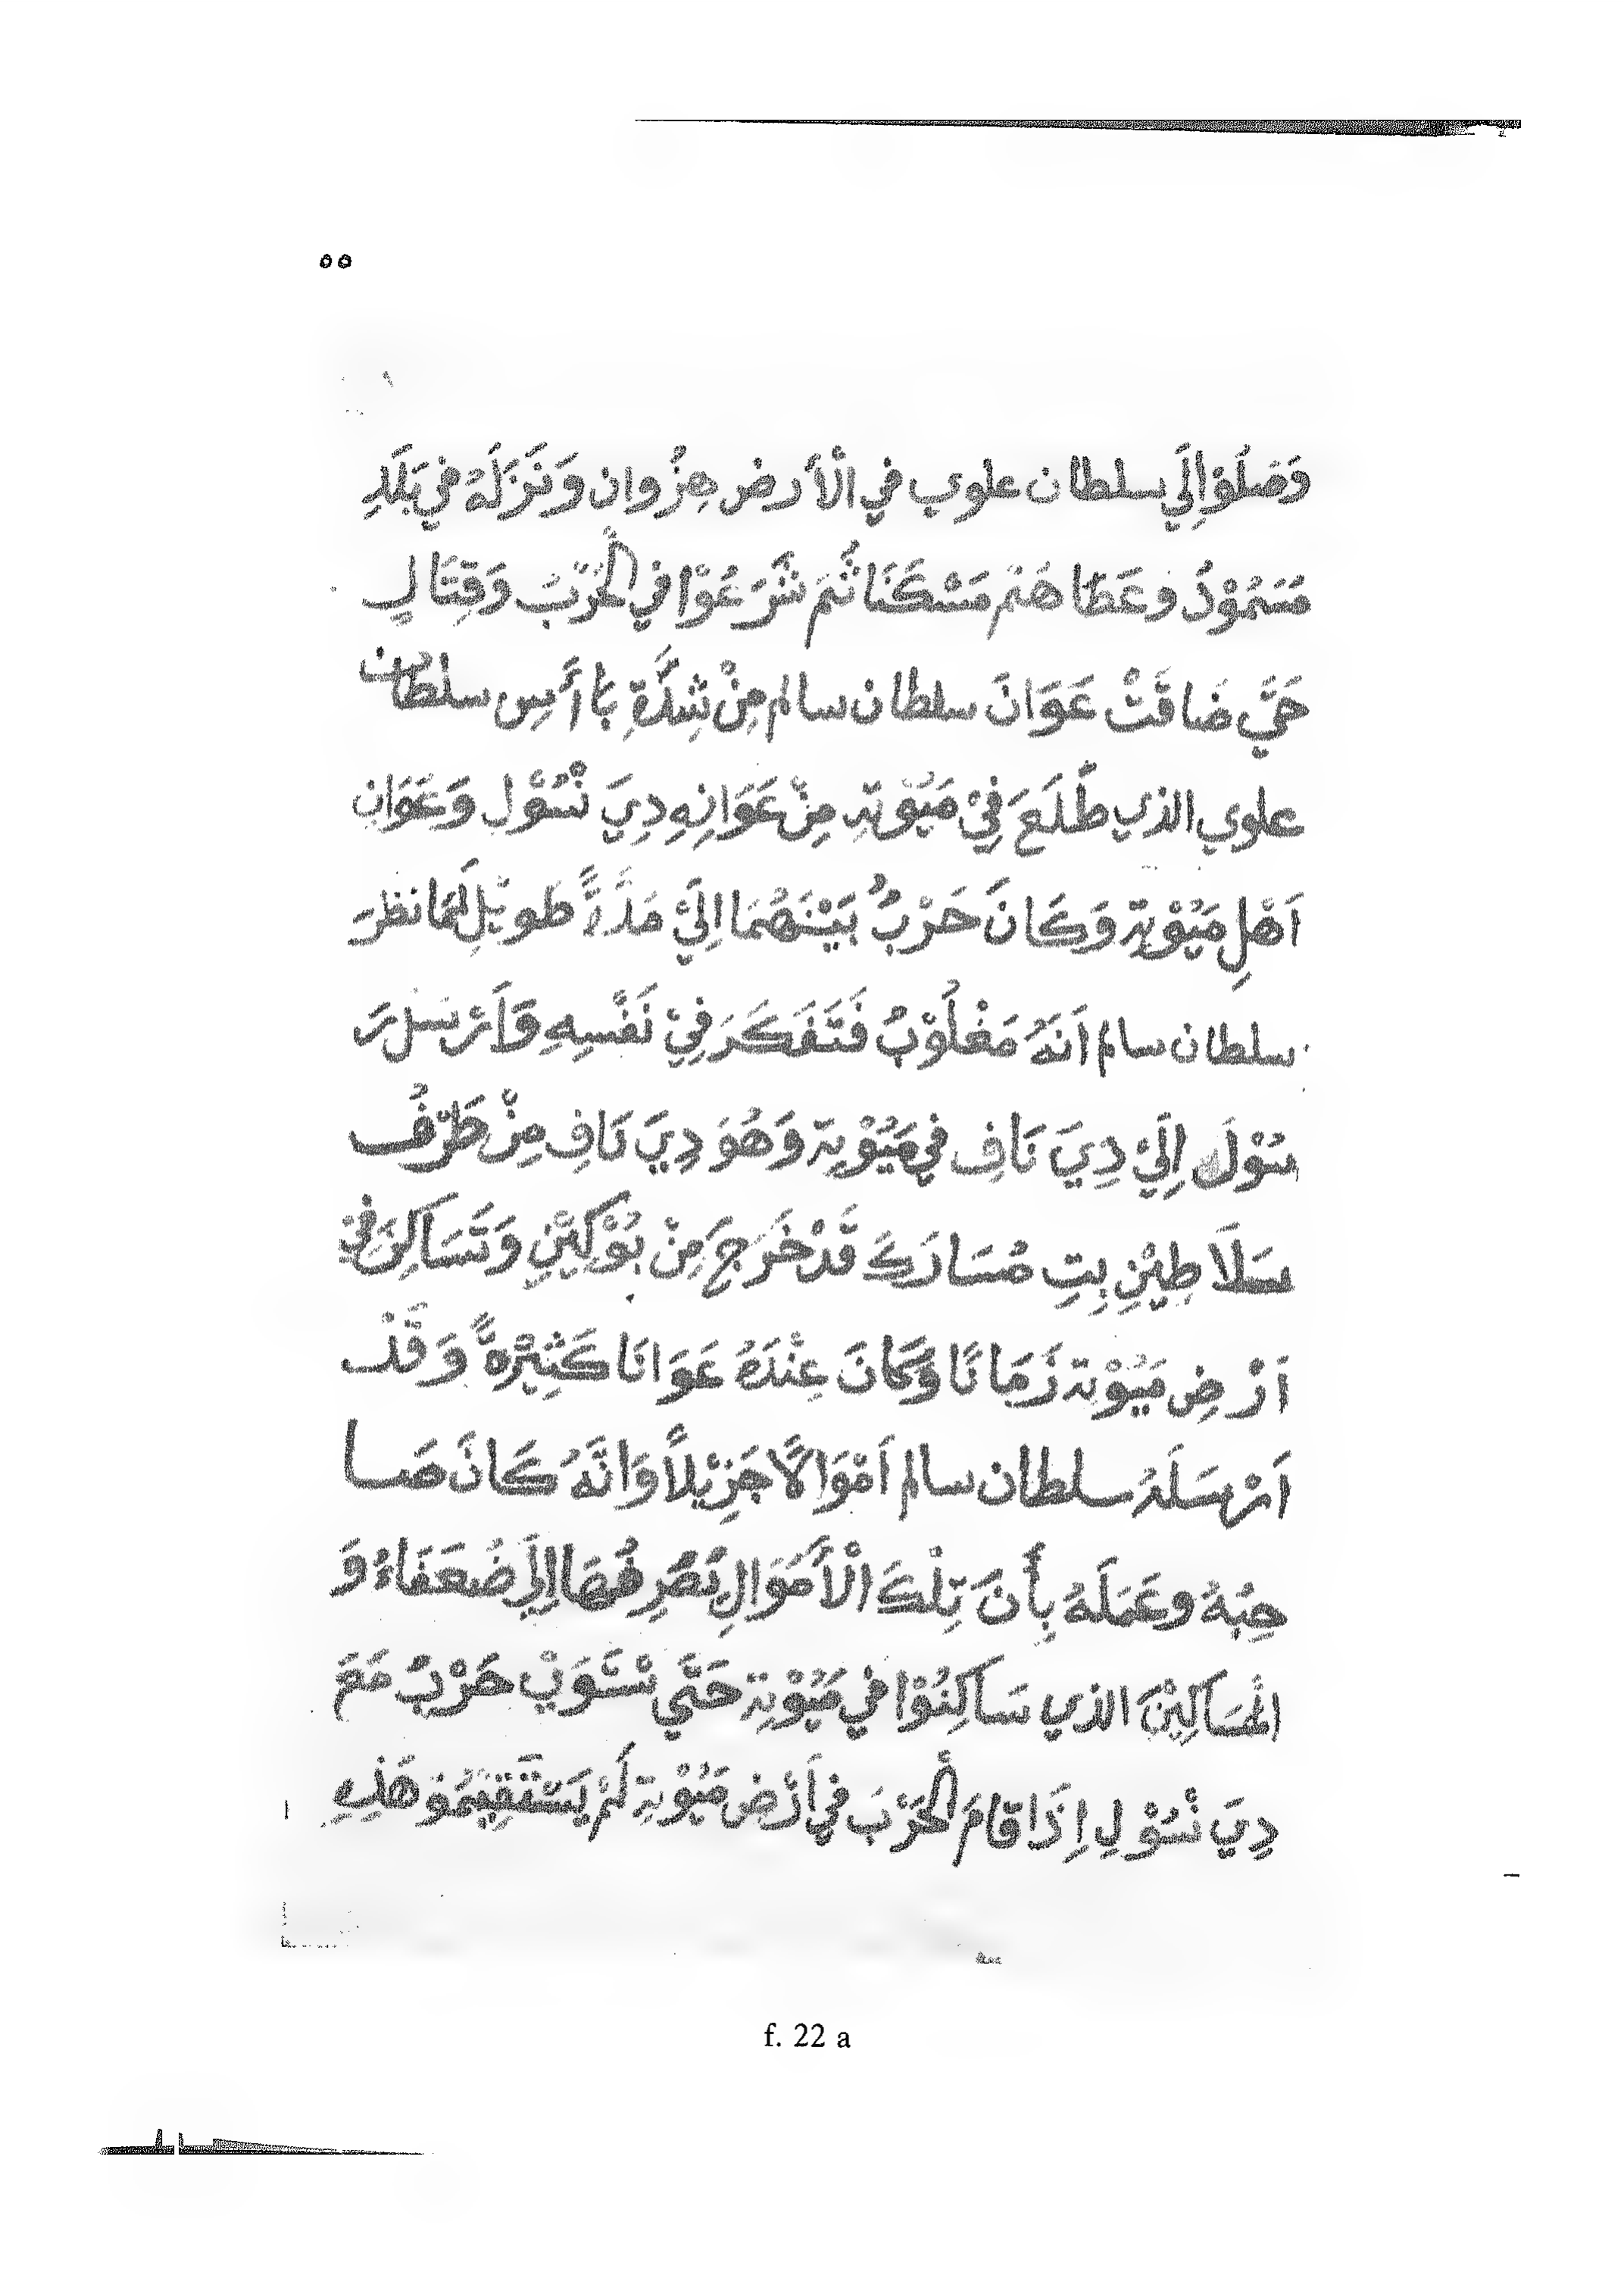 ٥٥
وَصَلُوْا إِلَي سلطان علوي في الْأَرض هِزُوان وَنَزَلَهُ في بَلَدِ
مَسَمُوْدُ وعَطاهَمْ مَسْكَنَا ثُمَ شَرَعُوْا في الْحَرْبَ وَقِتَالِ
حَتَّي ضَاقَتْ عَوَانَ سلطان سالم مِنْ شِدَّةِ بَاأَسِ سلطان
علوي الذي طَلَعَ فِيْ مَيُوْتِه مِنْ عَوَانِهِ دِيَ نْسُوْلِ وَعَوَانِ
اَهْلِ مَيُوْتِة وَكَانَ حَرْبُ بَيْنَهُمَا اِلَيْ مَدَّةً طويْلِ لَمَا نظرَ
سلطان سالم اَنَهُ مَغْلُوْبُ فَتَفَكَرَ فِيْ نَفْسِهِ وَاَرْسَل رَ
سُوْلَ إِلَيْ دِيَ نَافِ في مَيُوْتِة وَهُوَ دِيَ نَافِ مِنْ طَرَفُ
سَلَاطِيْنِ بِتِ مُسَارَكَ قَدْ خَرَجَ مِنْ بُوْكِيْنِ وَتَسَاكِنَ في
اَرْضِ مَيُوْتة زَمَانًا وَكَانَ عِنْدَهُ عَوَانَا كَثِيْرَةً وَقَدْ
اَرْسَلَهُ سلطان سالم اَمْوَالًا جَزِيْلًا وَانَّهُ كَانَ صَا
حِبُهُ وعَمَلَهُ بِأَنَ تِلْكَ الْأَمْوَالِ نُصْرِفُهَا إِلَي ضُعَفَاءُ وَ
الْمَسَاكِيْنَ الذي سَاكِنُوْا في مَيُوْتِة حَتَّي نْسَوَيْ حَرْبُ مَعَ
دِيَ نْسُوْلِ إِذَا قامَ الْحَرْبَ في اَرْض مَيُوْتِة لَمْ يَسْتَقِيْمُوْ هَذِهِ
f. 22 a